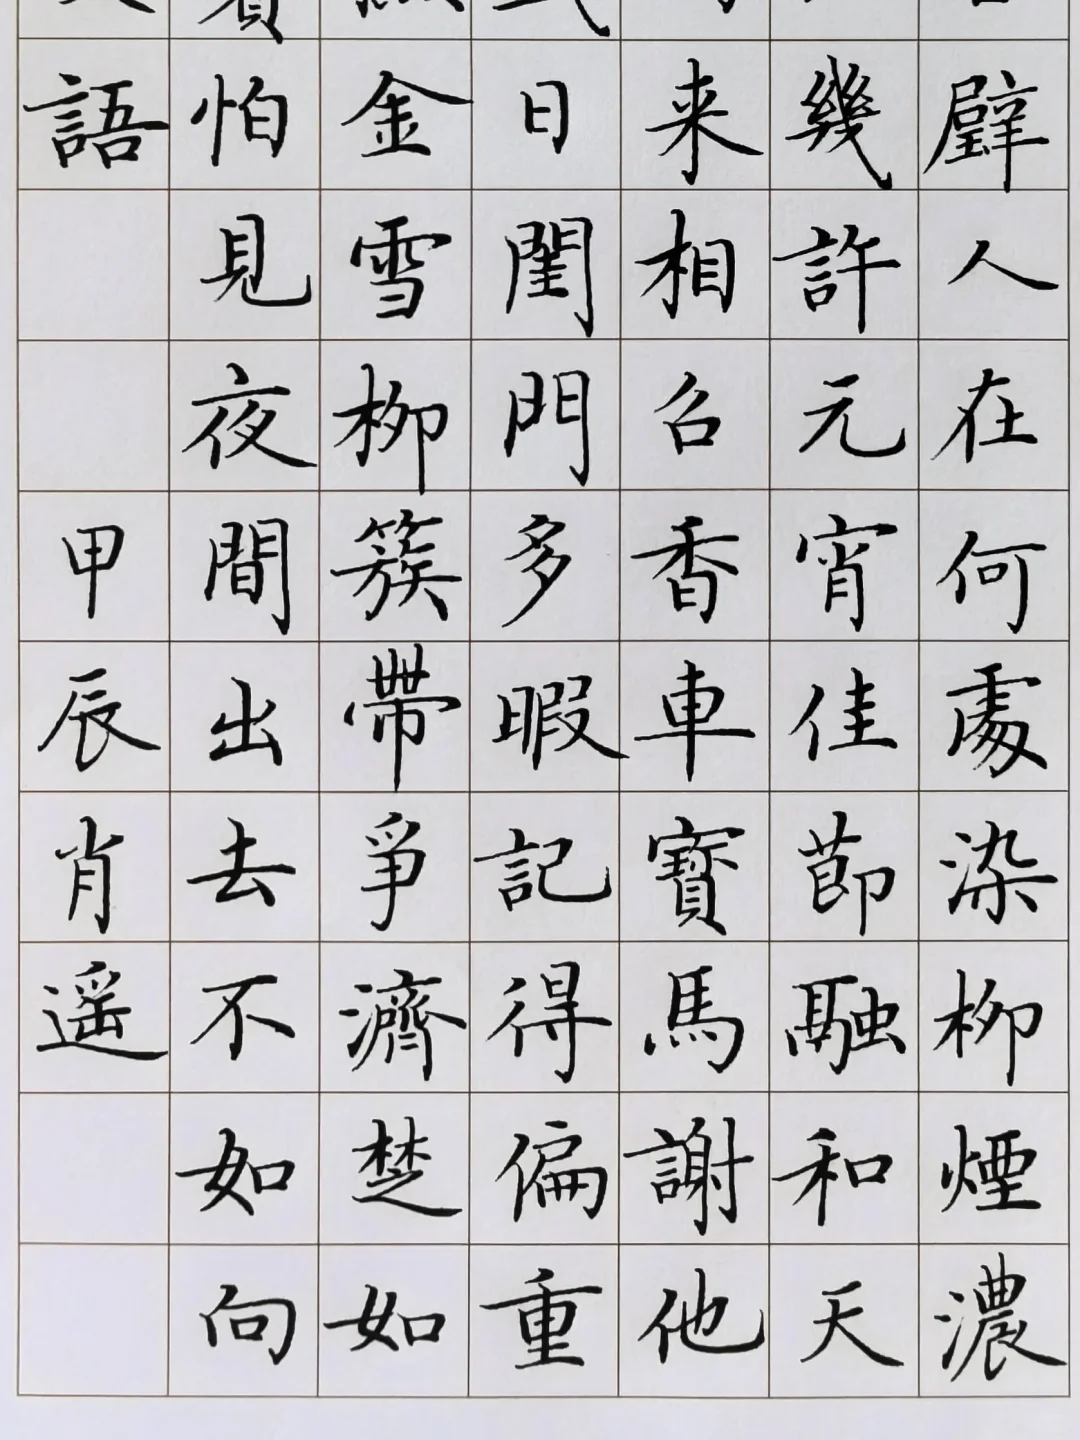 璧人在何處染柳煙濃
幾許元宵佳節融和天
来相召香車寶馬謝他
日閨門多暇記得偏重
金雪柳簇帶爭濟楚如
怕見夜間出去不如向
語
甲辰肖遥